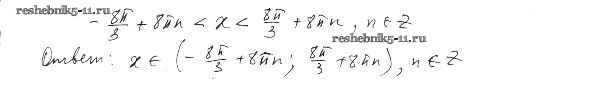 reshebnik5-11.ru
- 8π/3 + 8πn < x < 8π/3 + 8πn, n ∈ Z
reshebnik5-11.ru
Ответ: x ∈ (- 8π/3 + 8πn; 8π/3 + 8πn), n ∈ Z